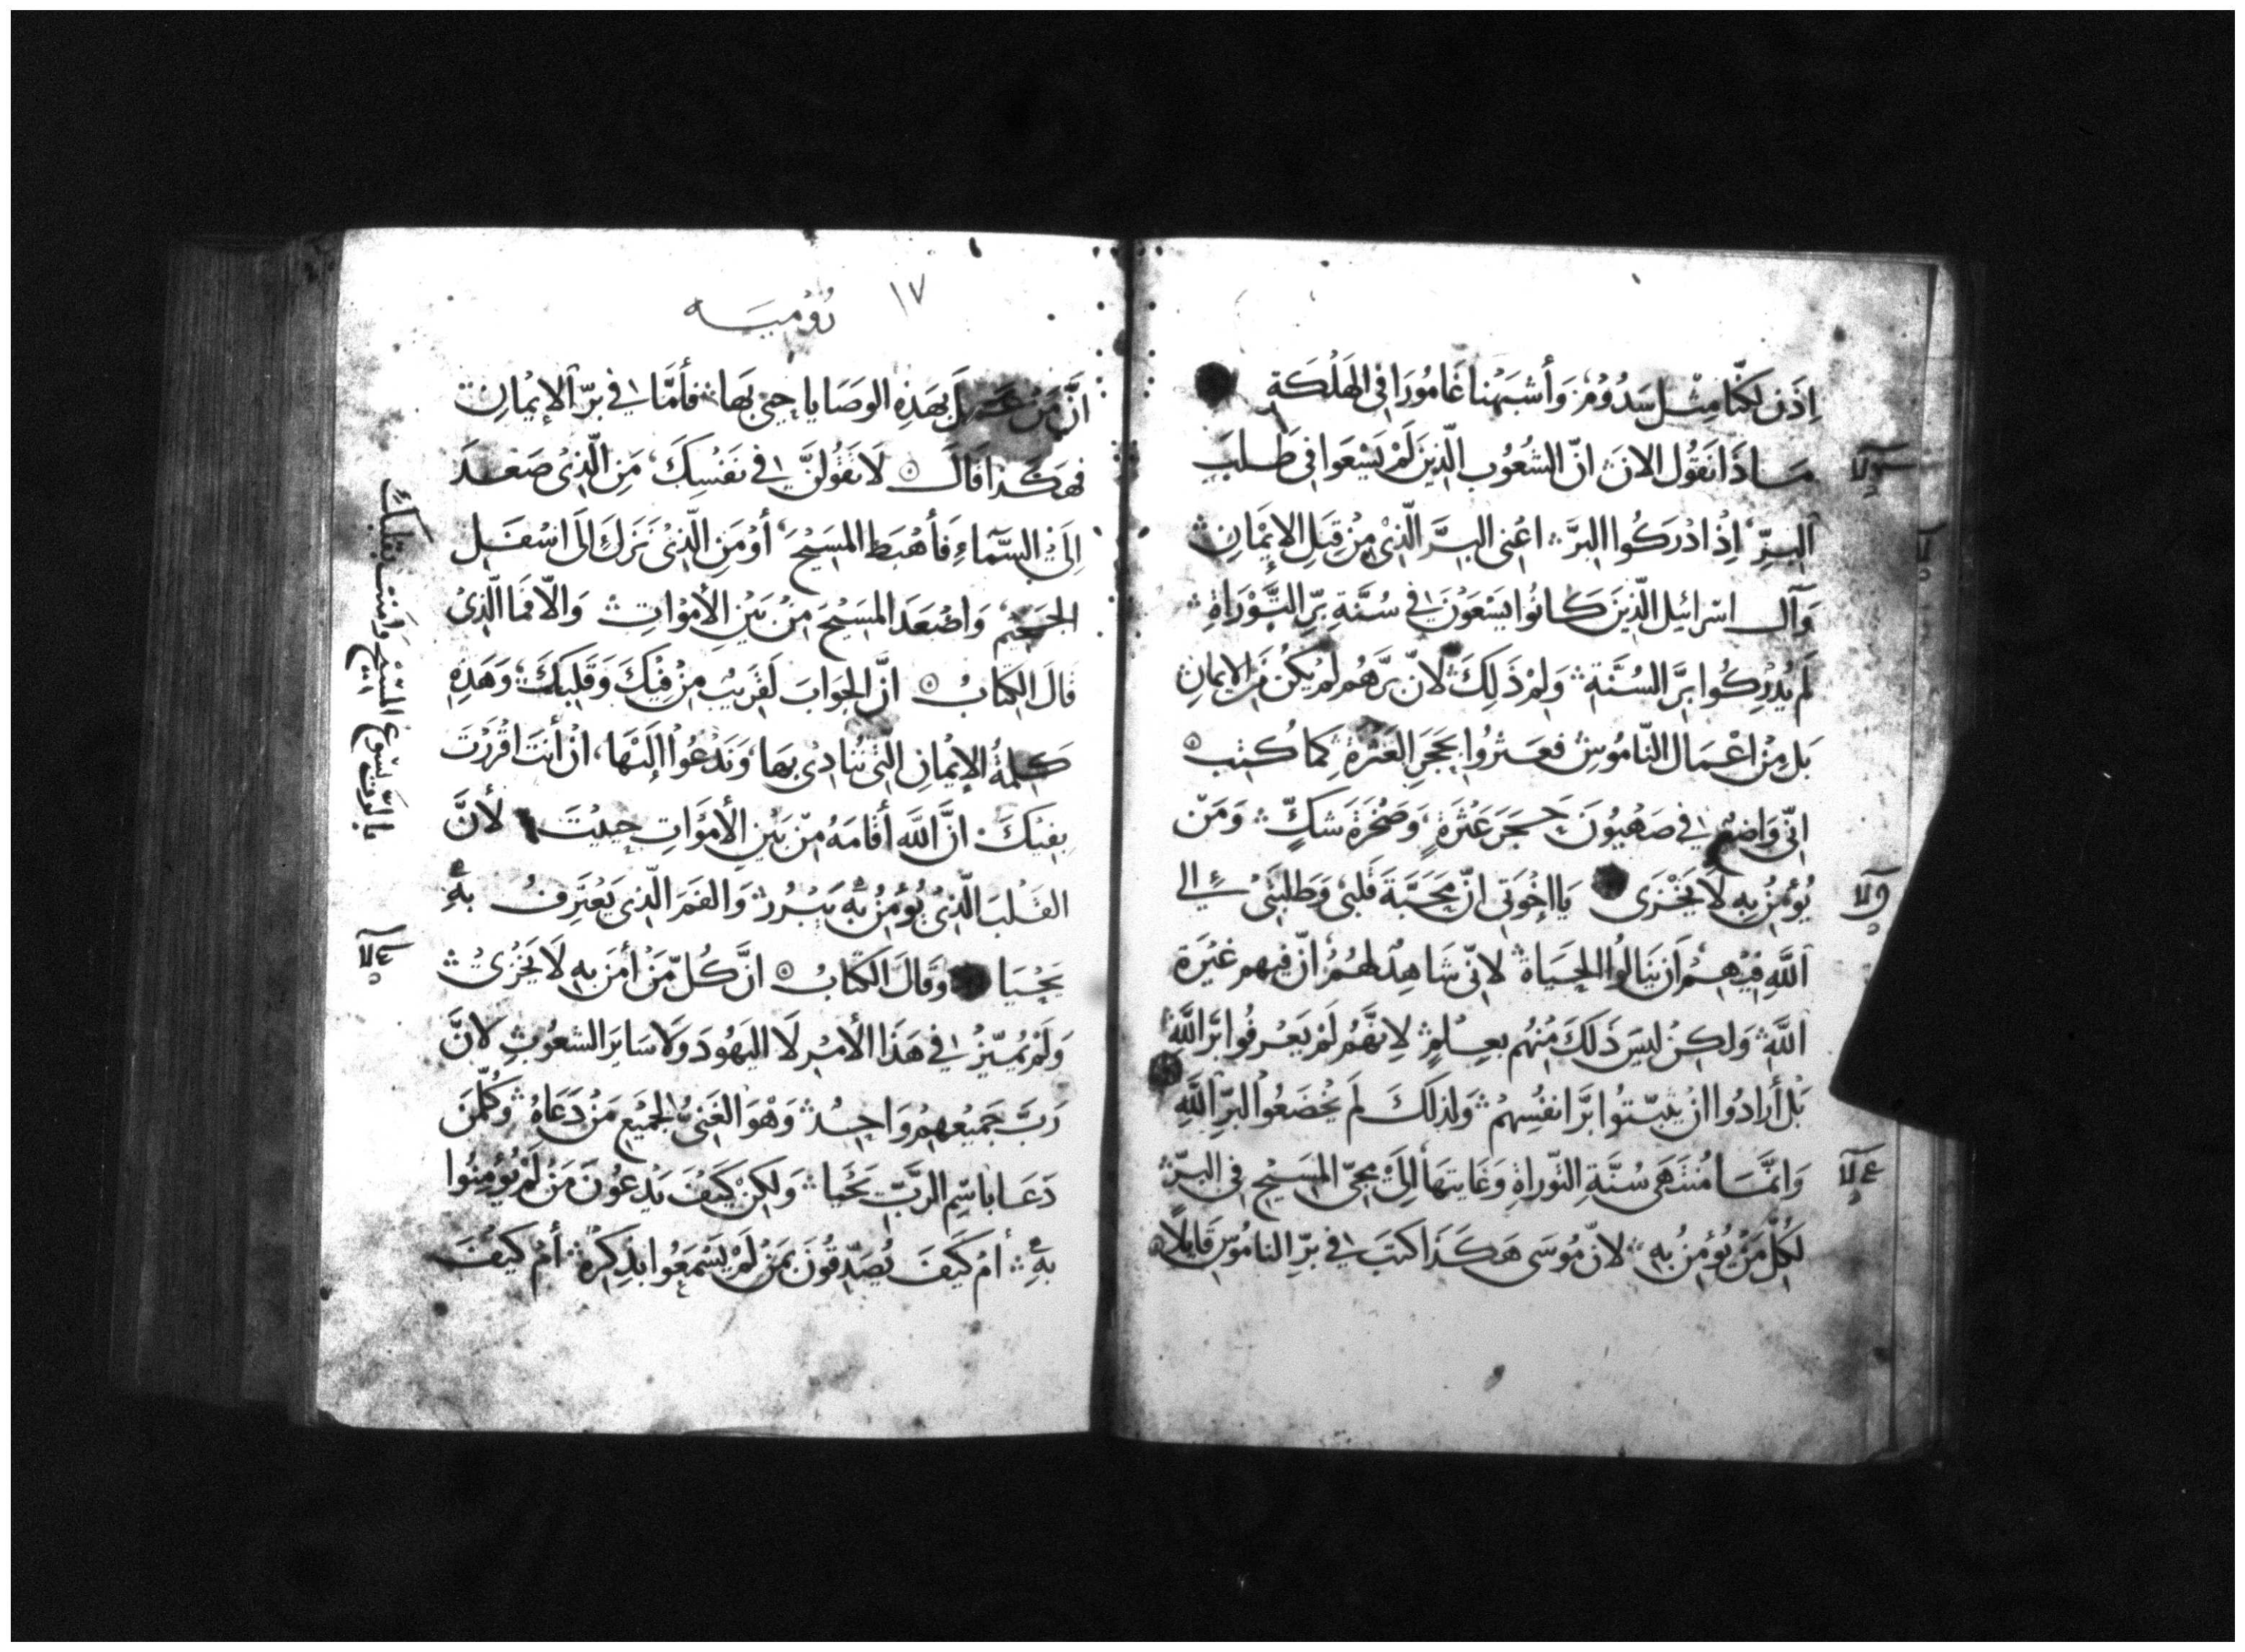 اِذَن لَكنَّا مِثْل سَدُوْمَ وَأَشبَهْنا غَامُورَا فى الهَلَكَةِ
مَاذَا نَقُول الانَ انّ الشعُوب الَّذِينَ لَمْ يَسْعَوا فى طَلبِ
البِرِّ اِذْ ادْرَكُوا البِرَّ اعْنى البِرَّ الَّذِىْ مِنْ قِبَلِ الإيْمَانِ
وَآل اسْرائيل الَّذِينَ كَانُوا يَسْعَوْنَ فى سُنَّةِ بِرِّ التَّوْرَاةِ
لَم يُدْرِكُوا بِرَّ السُنَّة وَلِمْ ذَلِكَ لانّ بِرَّهُم لَمْ يكُنْ مَن الايمانِ
بَل مِنْ اعْمَال النّامُوسْ فعَثرُوا بحَجَرِ العَثرَة كما كُتب
انّى وَاضِعٌ فى صَهْيُونَ حَجَرَ عَثْرَةٍ وَصَخرَةَ شَكٍّ وَمَنْ
يُؤمِنُ بِهِ لَا يَخْزَى يَا اخْوَتى انّ مَحَبَّةَ قَلبى وَطلبَتى الى
اللَّهِ فِيْهِمْ اَن يَنَالُوا الحَيَاة لانّى شَاهِدٌ لهُمْ انّ فيهم غَيْرَة
اللَّهِ وَلكِنْ ليسَ ذَلكَ مِنْهُم بعِلْمٍ لانّهُمْ لَمْ يَعْرفُوا برَّ اللَّهِ
بَلْ أَرادُوا انْ يثبّتوا برَّ انفُسِهمْ وَلِذلكَ لَم يَخْضَعُوا لبرِّ اللَّهِ
وَانَّمَا مُنتَهَى سُنَّةِ التّوراةِ وَغَايتهَا اِلَىْ مجىّ المَسِيْحِ فى البِرّ
لِكُلّ مَنْ يُؤمِنُ بهِ لانّ مُوسَى هَكَذَا كتبَ فى بِرِّ النامُوسِ قَايلًا
١٧
رُوْميَه
انَّ مَنْ عَمِلَ بهَذِهِ الوَصَايا حيىَ بهَا فأَمَّا فى برّ الإيْمانِ
فهَكَذَا قَالَ لَا تَقُولَنَّ فى نَفْسِكَ مَنِ الّذِىْ صَعدَ
اِلَىْ السَّمَاءِ فَأَهْبَطَ المَسِيْحَ أوْ مَنِ الّذِىْ نَزَلَ اِلَى اسْفَل
الجَحِيْم وَاصْعَدَ المَسِيْحَ مِنْ بَيْنِ الأمْوَاتِ وَالّا فَما الّذِىْ
قالَ الكِتَابُ انَّ الجوَابَ لقَرِيبٌ مِنْ فيْكَ وَقَلبِكَ وَهَذِهِ
كَلِمَةُ الإيْمانِ الّتى نُنَادِىْ بهَا وَنَدْعُوا اِلَيْهَا، انْ أنتَ اقْرَرْتَ
بِفيْكَ انَّ اللَّه أقَامَهُ مِنْ بَيْنِ الأمْوَاتِ حيِيْتَ لأَنَّ
القَلْبَ الّذِىْ يُؤمِنُ بِهِ يَبْرُر وَالفَمَ الّذِى يَعْتَرفُ بهِ
يَحْيَا وَقَالَ الكتَابُ انَّ كُلّ مَنْ أمنَ بِهِ لَا يَخْزَىْ
وَلَمْ يُمَيّزْ فى هَذَا الأمْرِ لَا اليَهُودَ وَلَا سَايرَ الشعُوْبِ لانَّ
رَبَّ جَميْعهِمْ وَاحِدٌ وَهْوَ الغَنىُّ لجَمِيْع مَنْ دَعَاهُ وَكُلّ مَن
دَعَا باسِمِ الرَبِّ يَحْيَا وَلكِنْ كَيْفَ يَدْعُونَ مَنْ لَمْ يُؤمِنُوا
بهِ أمْ كَيفَ يُصَدّقُونَ بمَنْ لَمْ يَسْمَعُوا بذِكْرِهِ أمْ كَيْفَ
بالرَّبّ يَسُوعَ المَسِيْح وَأمنت بقلبك